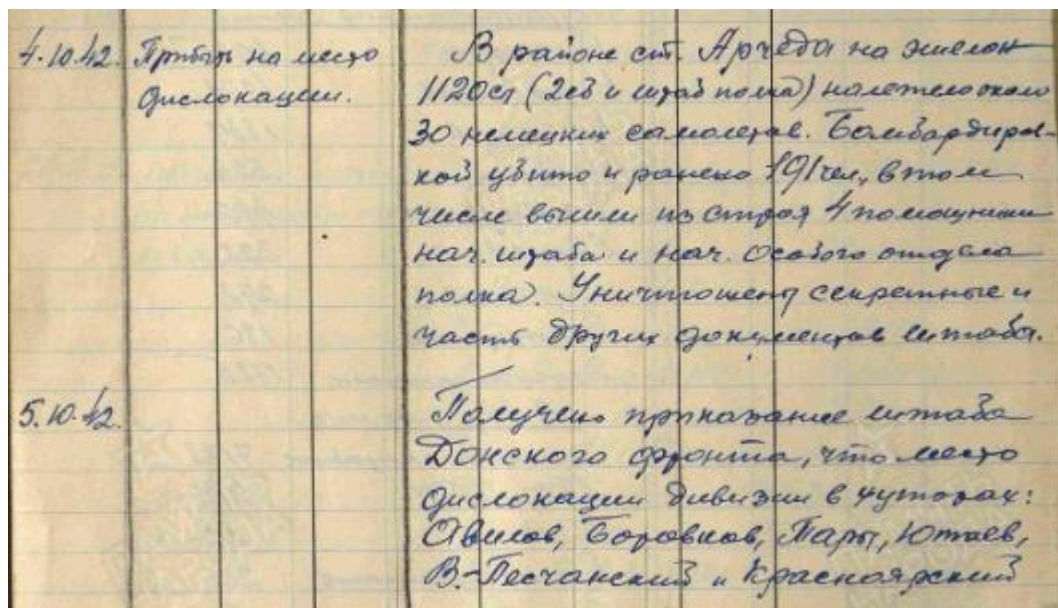 4.10.42. Прибыть на место
дислокации.
В районе ст. Арчеда на эшелон
1120сп (2сб и штаб полка) налетело около
30 немецких самолетов. Бомбардиров-
кой убито и ранено 191 чел, в том
числе вышли из строя 4 помощника
нач. штаба и нач. Особого отдела
полка). Уничтожены секретные и
часть других документов штаба.
5.10.42.
Получено приказание штаба
Донского фронта, что место
дислокации дивизии в хуторах:
Авилов, Боровков, Тары, Ютаев,
В.-Песчанский и Красноярский